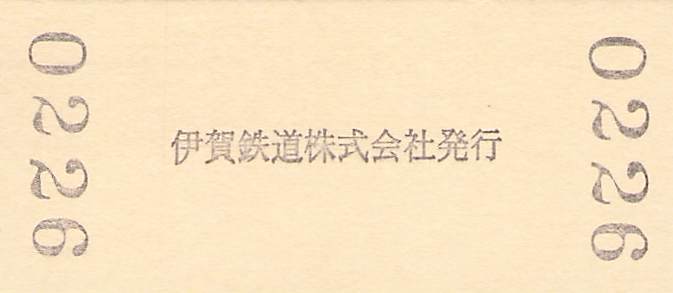 0226
伊賀鉄道株式会社発行
0226